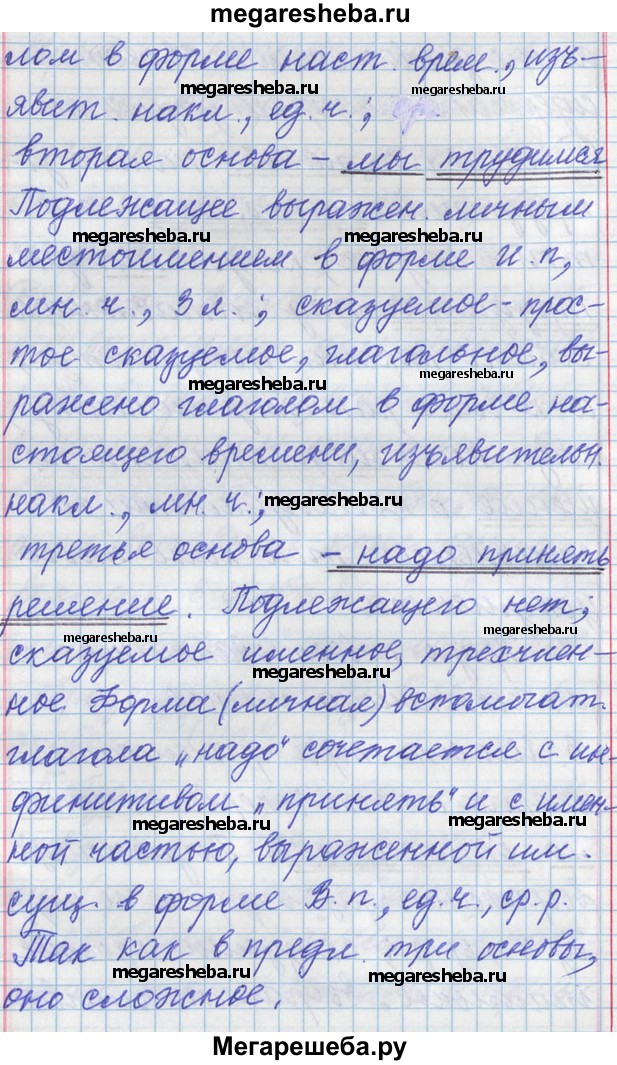 megaresheba.ru
лом в форме наст. врем., изъ-
megaresheba.ru megaresheba.ru
явит. накл., ед. ч.;
вторая основа – мы трудимся
Подлежащее выражен. личным
megaresheba.ru megaresheba.ru
местоимением в форме И. п.,
мн. ч., 3 л.; сказуемое - прос-
тое сказуемое, глагольное, вы-
megaresheba.ru megaresheba.ru
ражено глаголом в форме на-
стоящего времени, изъявительн.
накл., мн. ч.;
megaresheba.ru
третья основа – надо принять
решение. Подлежащего нет;
megaresheba.ru megaresheba.ru
сказуемое именное, трехчлен-
megaresheba.ru
ное. Форма (личная) вспомогат.
глагола „надо“ сочетается с ин-
финитивом „принять“ и с имен-
megaresheba.ru megaresheba.ru
ной частью, выраженной им.
сущ. в форме В. п., ед. ч., ср. р.
Так как в предл. три основы,
megaresheba.ru megaresheba.ru
оно сложное.
Мегарешеба.ру